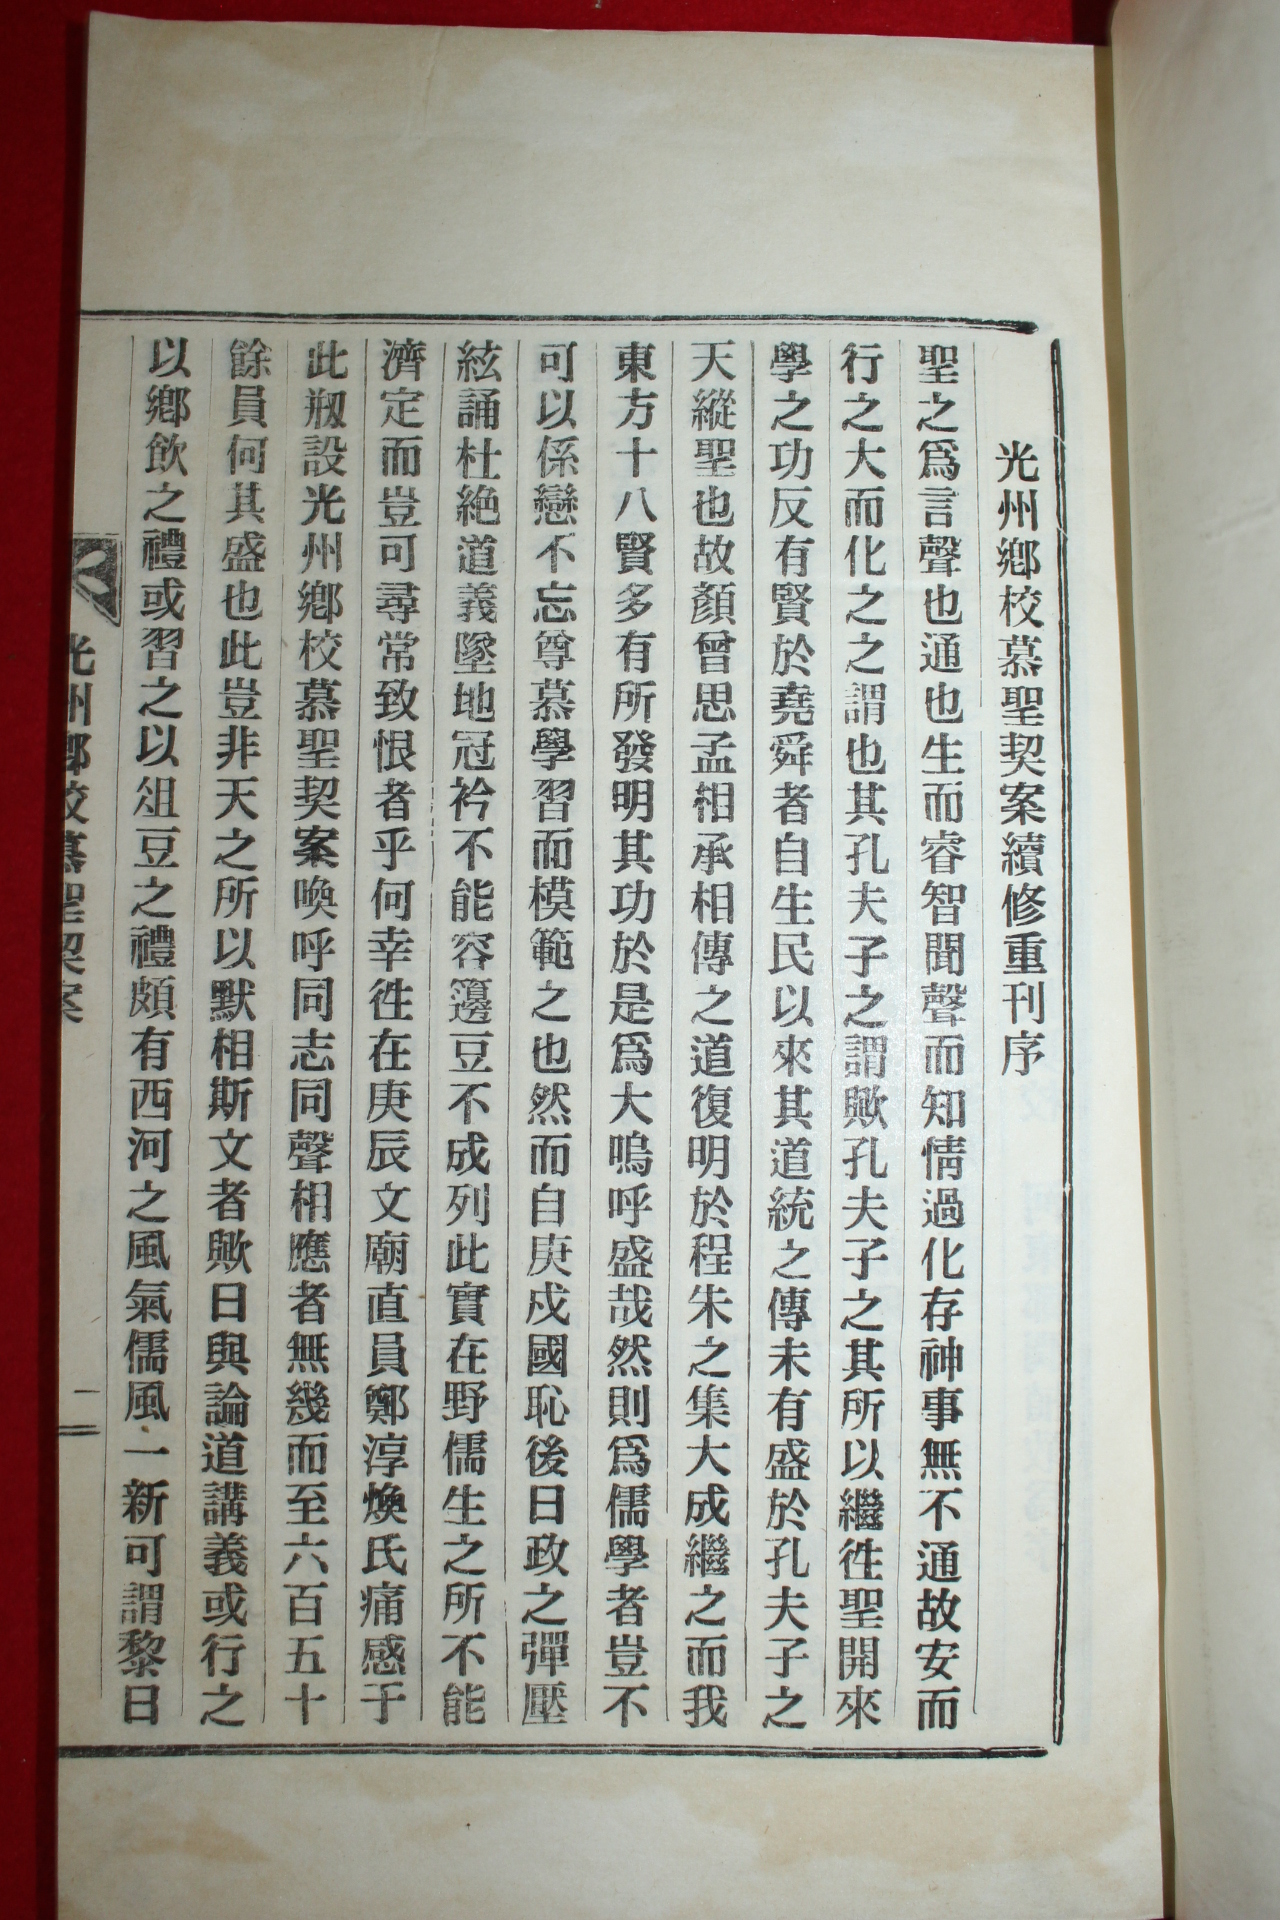 光州鄕校慕聖契案續修重刊序
聖之爲言聲也通也生而睿智聞聲而知情過化存神事無不通故安而
行之大而化之之謂也其孔夫子之謂歟孔夫子之其所以繼徃聖開來
學之功反有賢於堯舜者自生民以來其道統之傳未有盛於孔夫子之
天縱聖也故顏曾思孟相承相傳之道復明於程朱之集大成繼之而我
東方十八賢多有所發明其功於是爲大嗚呼盛哉然則爲儒學者豈不
可以係戀不忘尊慕學習而模範之也然而自庚戍國恥後日政之彈壓
絃誦杜絶道義墜地冠衿不能容籩豆不成列此實在野儒生之所不能
濟定而豈可尋常致恨者乎何幸徃在庚辰文廟直員鄭淳煥氏痛感于
此刱設光州鄕校慕聖契案喚呼同志同聲相應者無幾而至六百五十
餘員何其盛也此豈非天之所以默相斯文者歟日與論道講義或行之
以鄕飮之禮或習之以俎豆之禮頗有西河之風氣儒風一新可謂黎日
光州鄕校慕聖契案 一